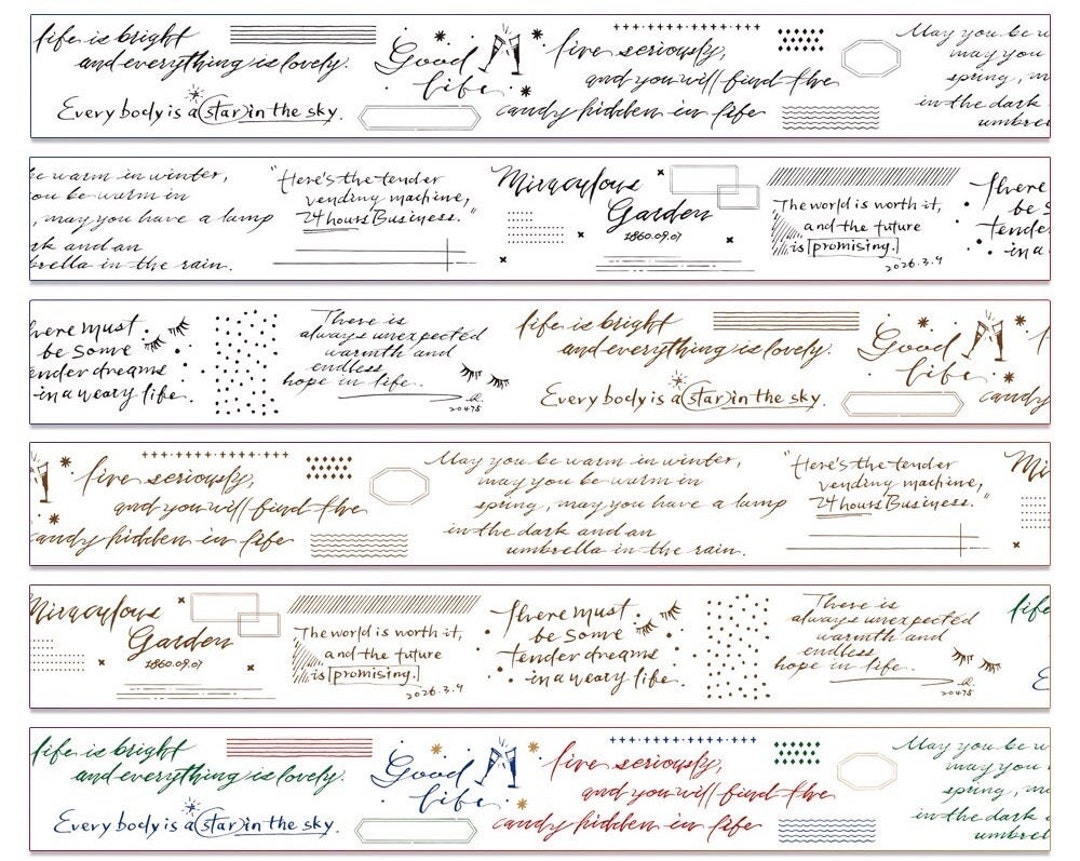 life is bright
and everything is lovely.
Every body is a star in the sky.
Good
life
live seriously,
and you will find the
candy hidden in life
May you be w
may you
spring, m
in the dark
umbrel
be warm in winter,
ou be warm in
, may you have a lamp
rk and an
brella in the rain.
"Here's the tender
vending machine,
24 hours Business."
Miraculous
Garden
1860.09.07
The world is worth it,
and the future
is promising.
2026.3.9
There
be s
tende
in a
here must
be some
ender dreams
in a weary life.
There is
always unexpected
warmth and
endless
hope in life.
20475
life is bright
and everything is lovely.
Every body is a star in the sky.
Good
life
candy
live seriously,
and you will find the
candy hidden in life
May you be warm in winter,
may you be warm in
spring, may you have a lamp
in the dark and an
umbrella in the rain.
"Here's the tender
vending machine,
24 hours Business."
Mi
Miraculous
Garden
1860.09.07
The world is worth it,
and the future
is promising.
2026.3.9
There must
be some
tender dreams
in a weary life.
There is
always unexpected
warmth and
endless
hope in life.
20475
life
E
life is bright
and everything is lovely.
Every body is a star in the sky.
Good
life
live seriously,
and you will find the
candy hidden in life
May you be w
may you
spring, m
in the dark
umbrel